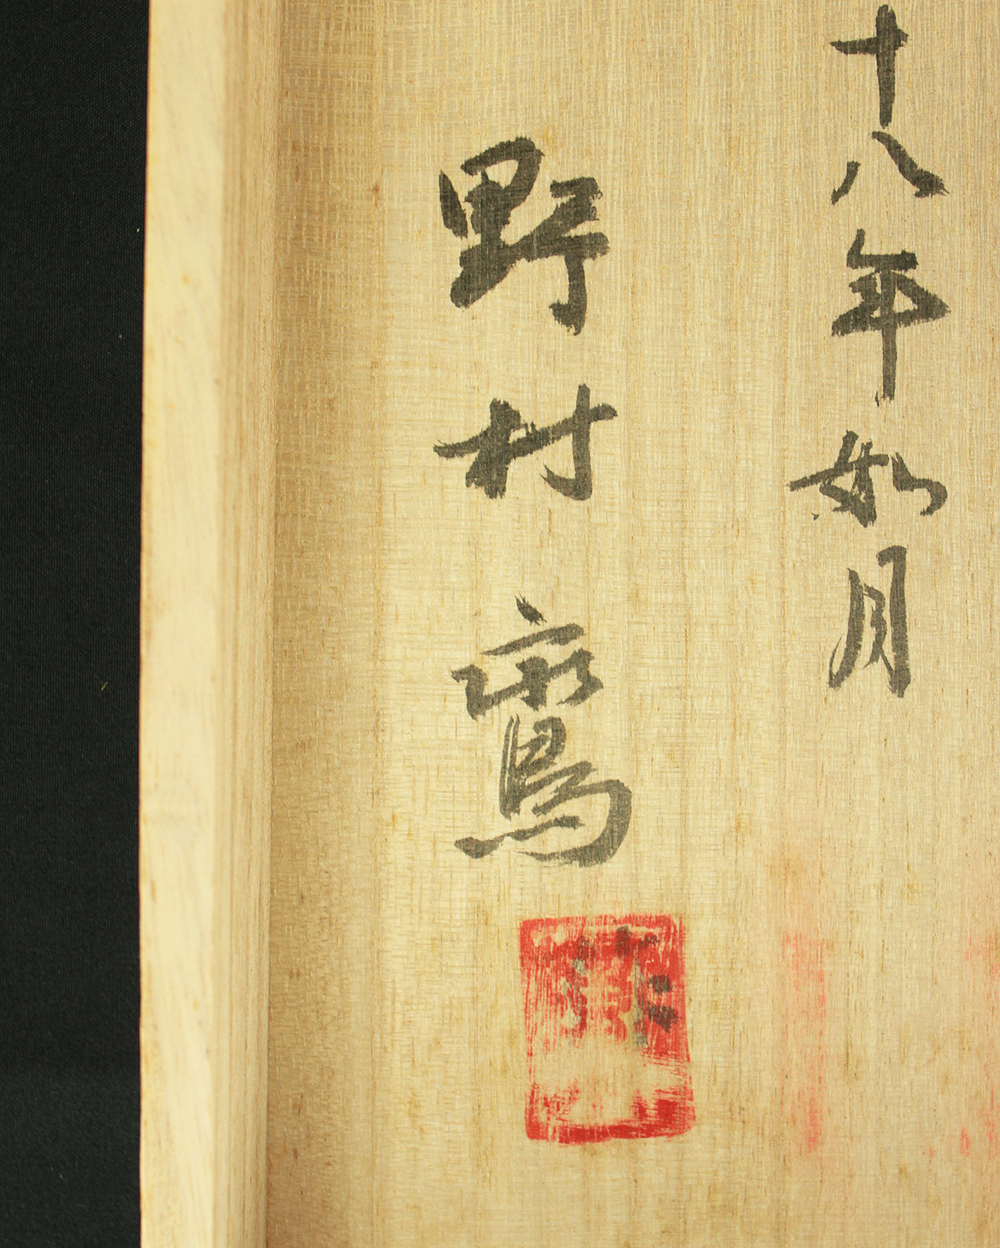 十八年如月
野村鸞